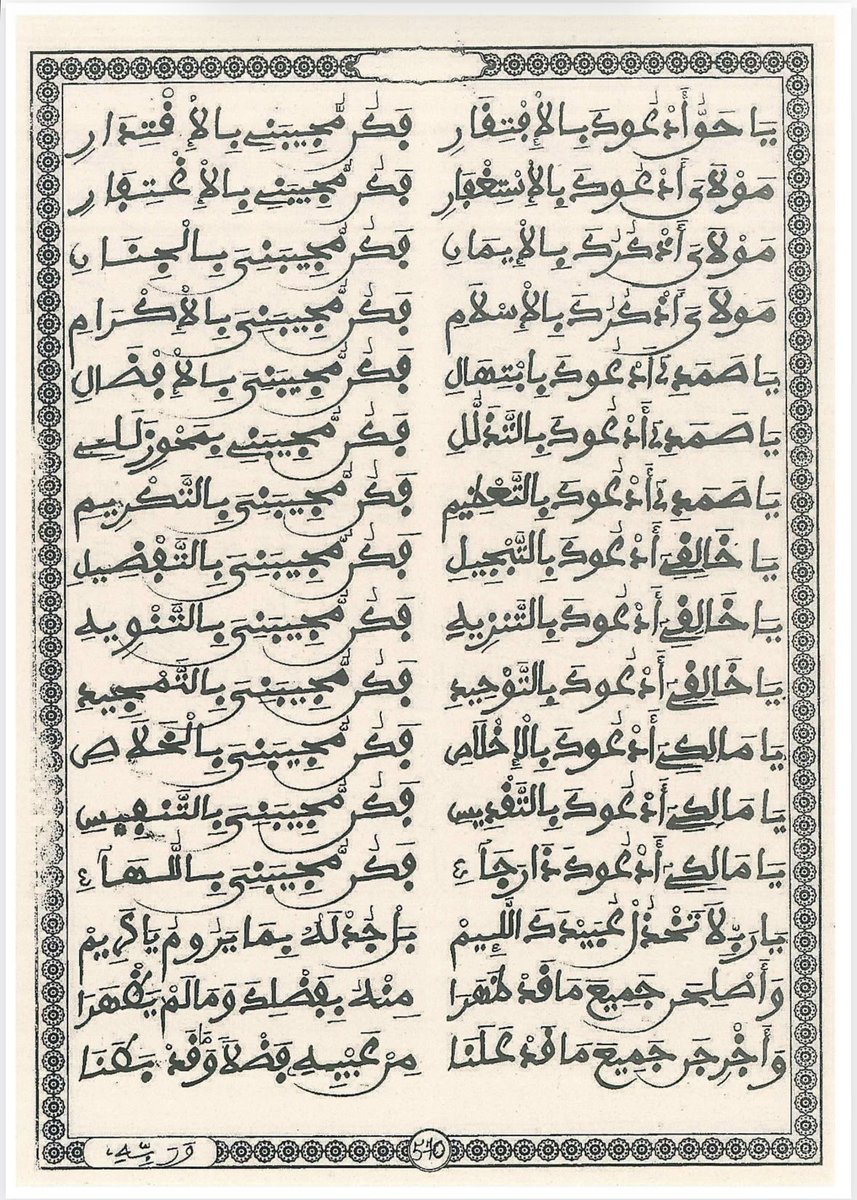 يَا حَقُّ أَدْعُوكَ بِالْإِفْتِقَارِ فَكُن مُّجِيبَنِي بِالْإِقْتِدَارِ
مَوْلَايَ أَدْعُوكَ بِالْإِسْتِغْفَارِ فَكُن مُّجِيبَنِي بِالْإِغْتِفَارِ
مَوْلَايَ أَذْكُرُكَ بِالْإِيمَانِ فَكُن مُّجِيبَنِيَ بِالْجِنَانِ
مَوْلَايَ أَذْكُرُكَ بِالْإِسْلَامِ فَكُن مُّجِيبَنِيَ بِالْإِكْرَامِ
يَا صَمَدِي أَدْعُوكَ بِابْتِهَالِ فَكُن مُّجِيبَنِيَ بِالْإِفْضَالِ
يَا صَمَدِي أَدْعُوكَ بِالتَّذَلُّلِ فَكُن مُّجِيبَنِي بِمَحْوِ زَلَلِي
يَا صَمَدِي أَدْعُوكَ بِالتَّعْظِيمِ فَكُن مُّجِيبَنِيَ بِالتَّكْرِيمِ
يَا خَالِقِي أَدْعُوكَ بِالتَّبْجِيلِ فَكُن مُّجِيبَنِيَ بِالتَّفْضِيلِ
يَا خَالِقِي أَدْعُوكَ بِالتَّنْزِيهِ فَكُن مُّجِيبَنِيَ بِالتَّنْوِيهِ
يَا خَالِقِي أَدْعُوكَ بِالتَّوْحِيدِ فَكُن مُّجِيبَنِيَ بِالتَّمْجِيدِ
يَا مَالِكِي أَدْعُوكَ بِالْإِخْلَاصِ فَكُن مُّجِيبَنِيَ بِالْخَلَاصِ
يَا مَالِكِي أَدْعُوكَ بِالتَّقْدِيسِ فَكُن مُّجِيبَنِيَ بِالتَّنْفِيسِ
يَا مَالِكِي أَدْعُوكَ ذَا رَجَآءِ فَكُن مُّجِيبَنِيَ بِاللُّهَآءِ
يَا رَبِّ لَا تَخْذُلْ عُبَيْدَكَ اللَّئِيمْ بَلْ جُدْ لَهُ بِمَا يَرُومُ يَا كَرِيمْ
وَأَصْلِحَنْ جَمِيعَ مَا قَدْ ظَهَرَا مِنْهُ بِفَضْلِكَ وَمَا لَمْ يَظْهَرَا
وَأَخْرِجَنْ جَمِيعَ مَا قَدْ عَلَنَا مِنْ عَيْبِهِ فَضْلًا وَمَا قَدْ بَطَنَا
540